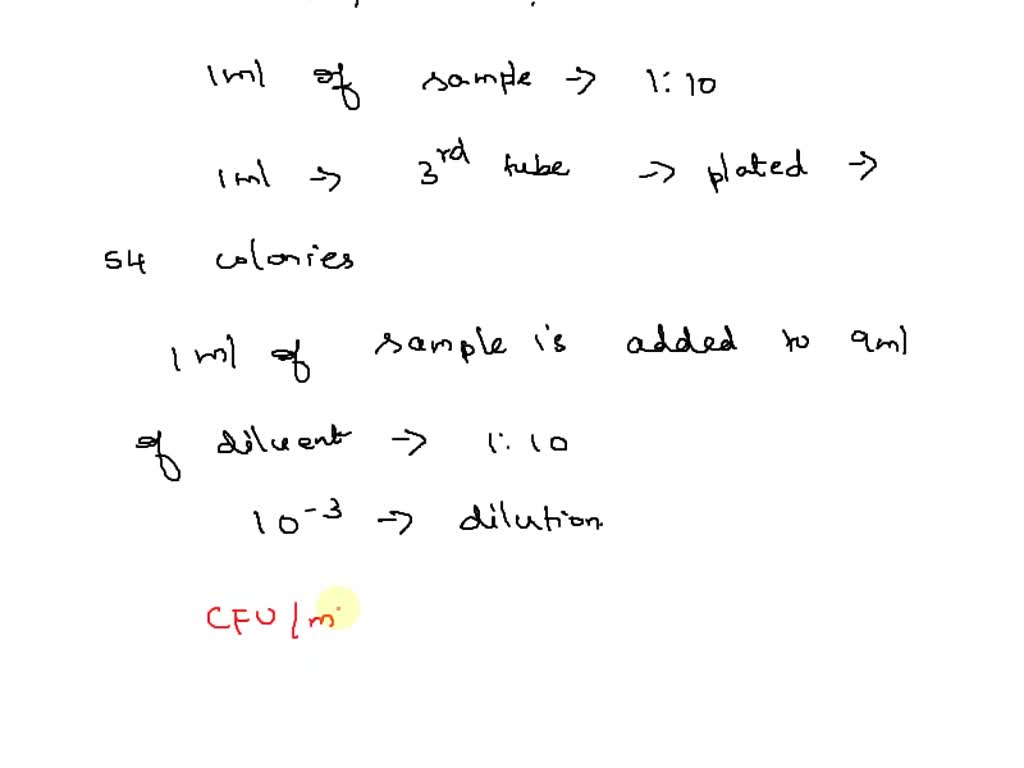 1ml of sample → 1:10
1ml → 3rd tube → plated →
54 colonies
1 ml of sample is added to 9ml
of diluent → 1:10
10^-3 → dilution.
CFU/m